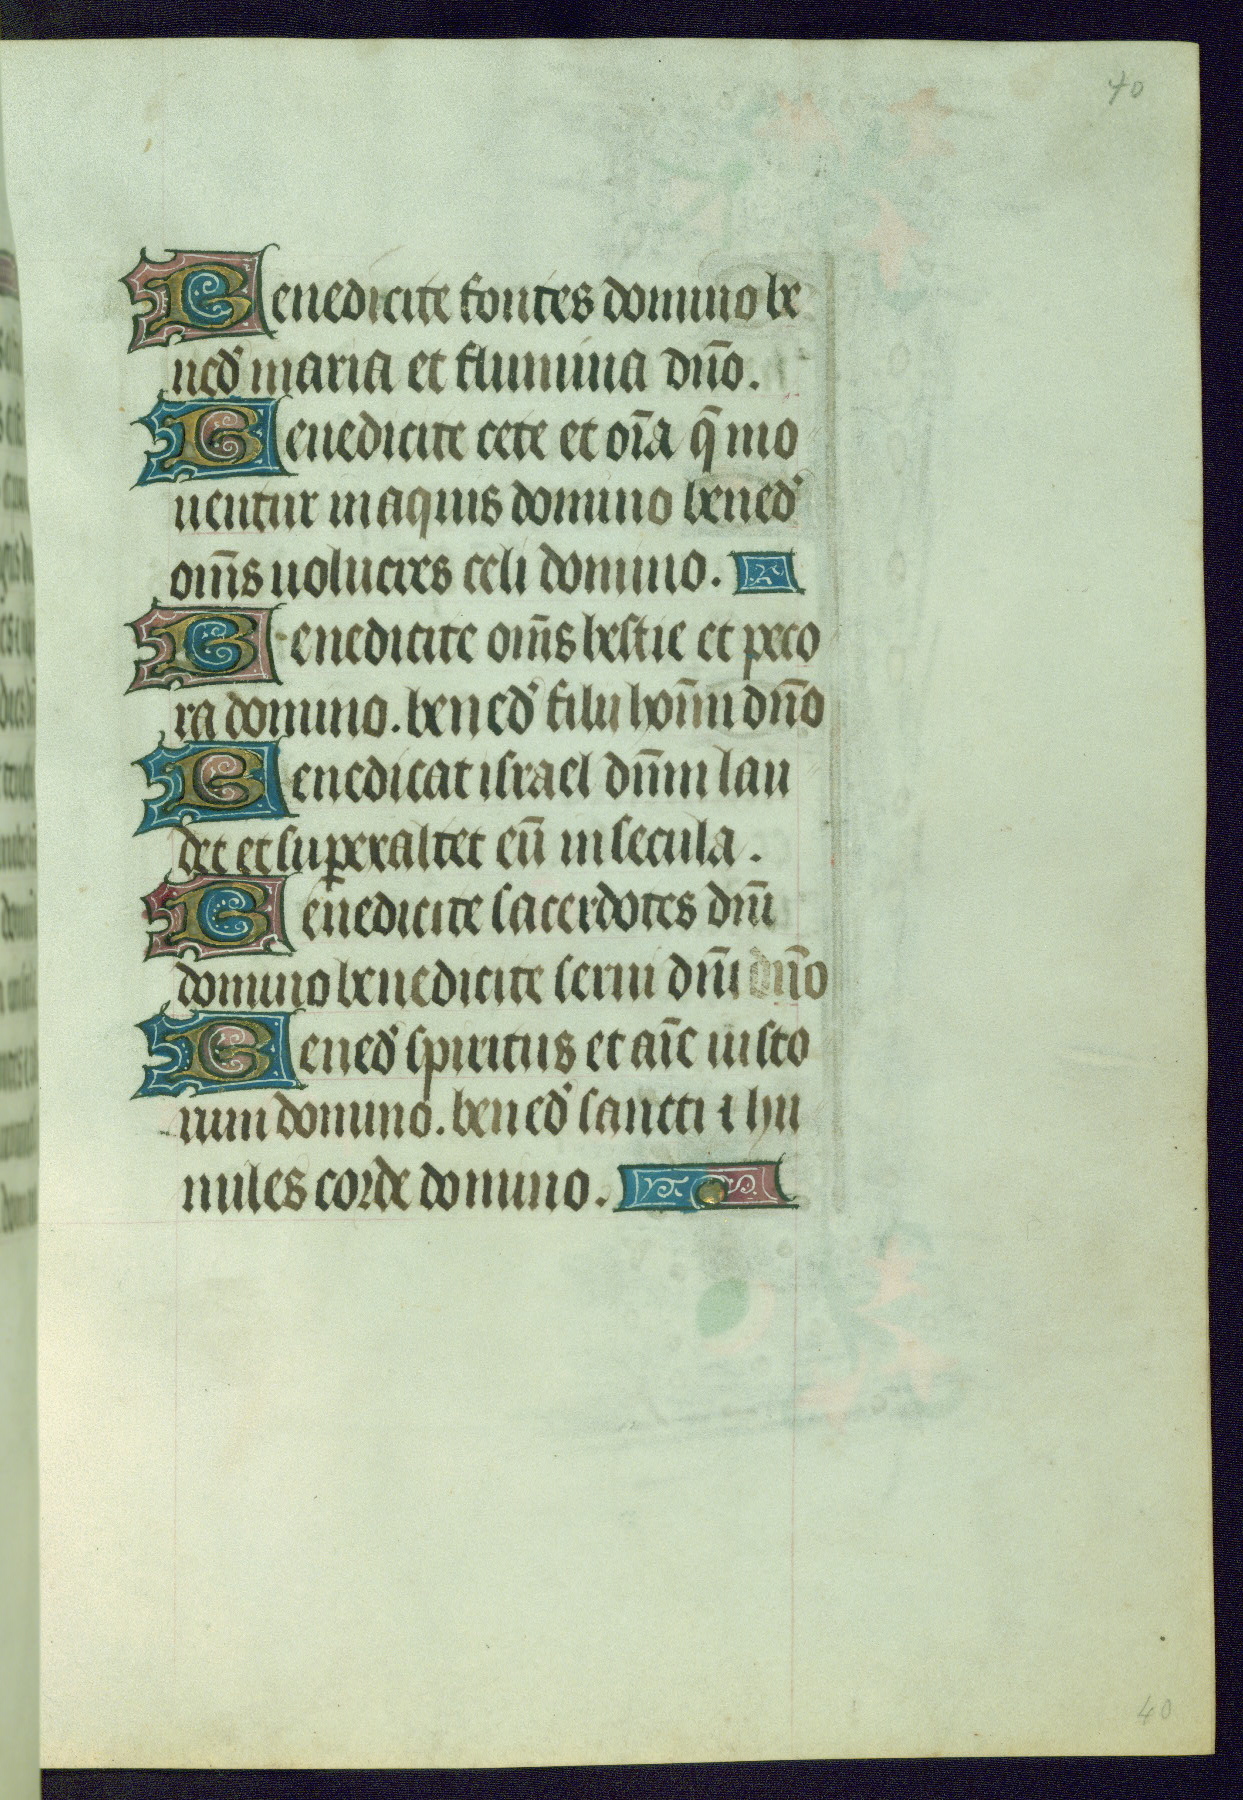 40
Benedicite fontes domino be
ned̉ maria et flumina dño.
Benedicite cete et oĩa q̃ mo
uentur in aquis domino bened̉
om̃s uolucres celi domino.
Benedicite om̃s bestie et peco
ra domino. bened̉ filii hoĩm dño
Benedicat israel dñm lau
det et superexaltet eũ in secula.
Benedicite sacerdotes dñi
domino benedicite serui dñi dño
Bened̉ spiritus et aĩe iusto
rum domino. bened̉ sancti ⁊ hu
miles corde domino.
40